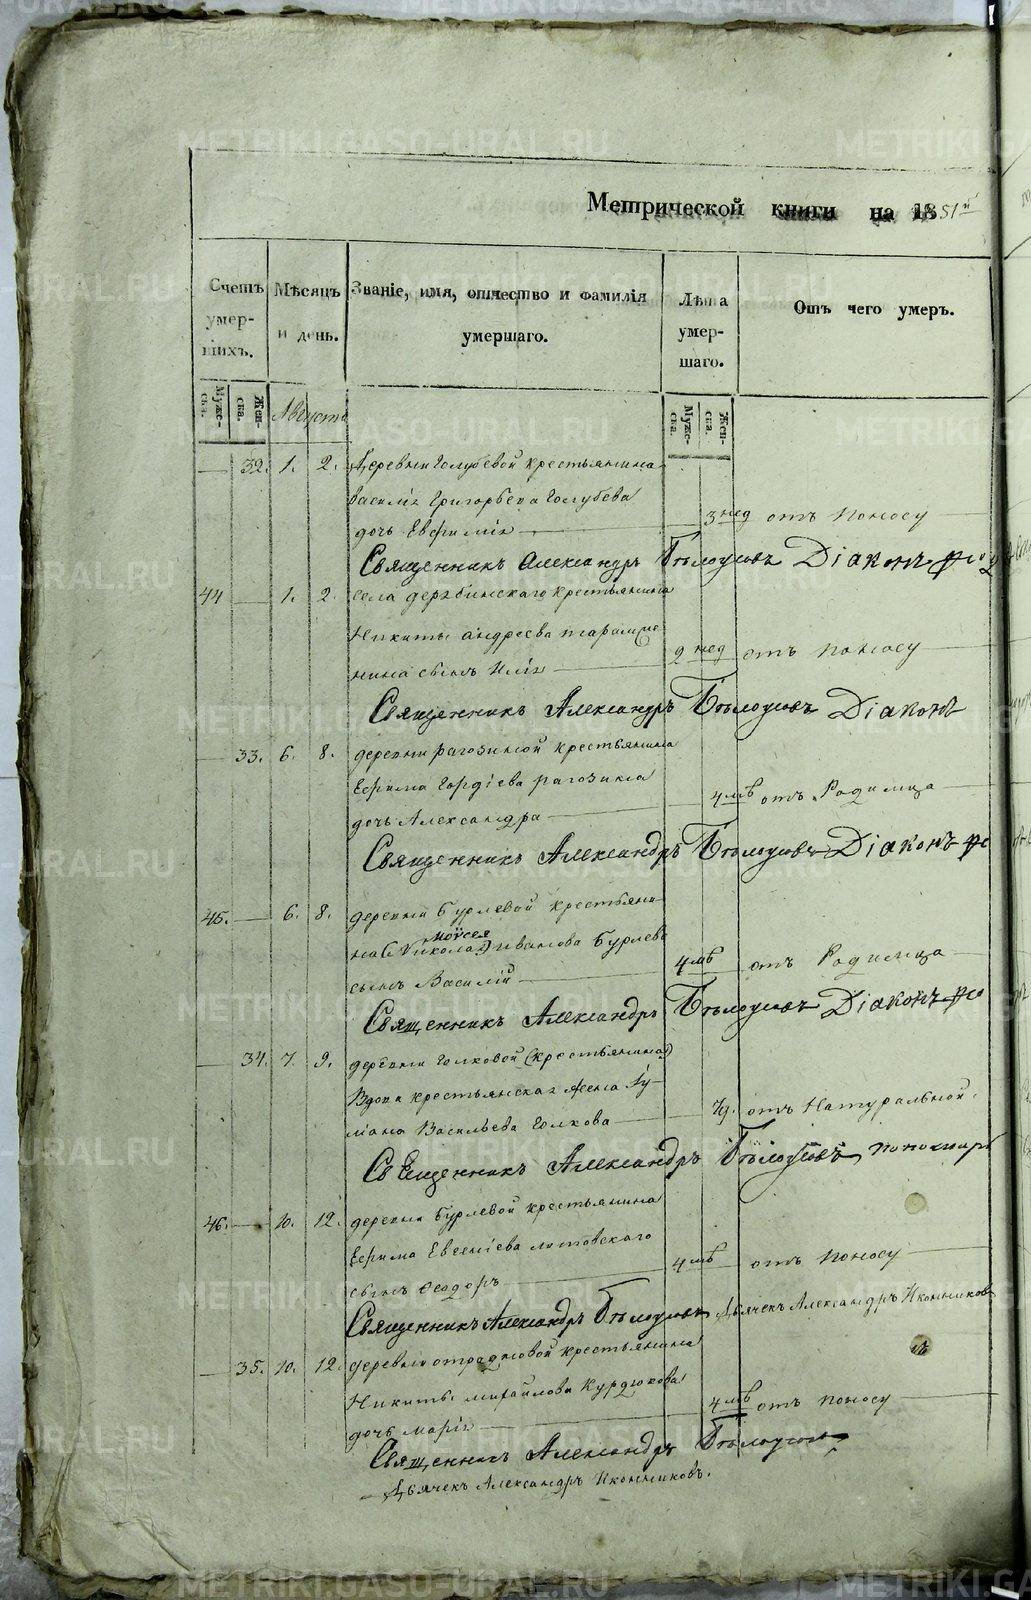 Метрической книги на 1851й
Счетъ умершихъ.
Мѣсяцъ и день.
Званіе, имя, отчество и фамилія умершаго.
Лѣта умершаго.
Отъ чего умеръ.
Мужеска. Женска. Августъ Мужеска. Женска.
32. 1. 2. Деревни Голубевой крестьянина
Василія Григорьева Голубева
дочь Евфимія 3 нед отъ поносу
Священникъ Александръ Бѣлоусовъ Діаконъ
44 1. 2. села дерябинскаго крестьянина
Никиты андреева
сынъ Илія 2 нед отъ поносу
Священникъ Александръ Бѣлоусовъ Діаконъ
33. 6. 8. деревни рагозиной крестьянина
Ефима Гордіева рагозина
дочь Александра 4 мѣ отъ Родимца
Священникъ Александръ Бѣлоусовъ Діаконъ
45. 6. 8. деревни Бурлевой крестьяни-
моѵсея
на (Николая) иванова Бурлева
сынъ Василій 4 мѣ отъ Родимца
Священникъ Александръ Бѣлоусовъ Діаконъ
34. 7. 9. деревни Голковой (крестьянина)
Вдова крестьянская жена Іу-
ліана Васильева Голкова отъ Натуральной.
Священникъ Александръ Бѣлоусовъ пономарь
46. 10. 12. деревни Бурлевой крестьянина
Ефима Евгеніева литовскаго
сынъ Ѳеодоръ 4 мѣ отъ поносу
Священникъ Александръ Бѣлоусовъ Дьячекъ Александръ Иконниковъ
35. 10. 12. деревни отрадновой крестьянина
Никиты михайлова Курдюкова
дочь марія 4 мѣ отъ поносу
Священникъ Александръ Бѣлоусовъ
Дьячекъ Александръ Иконниковъ.
METRIKI.GASO-URAL.RU